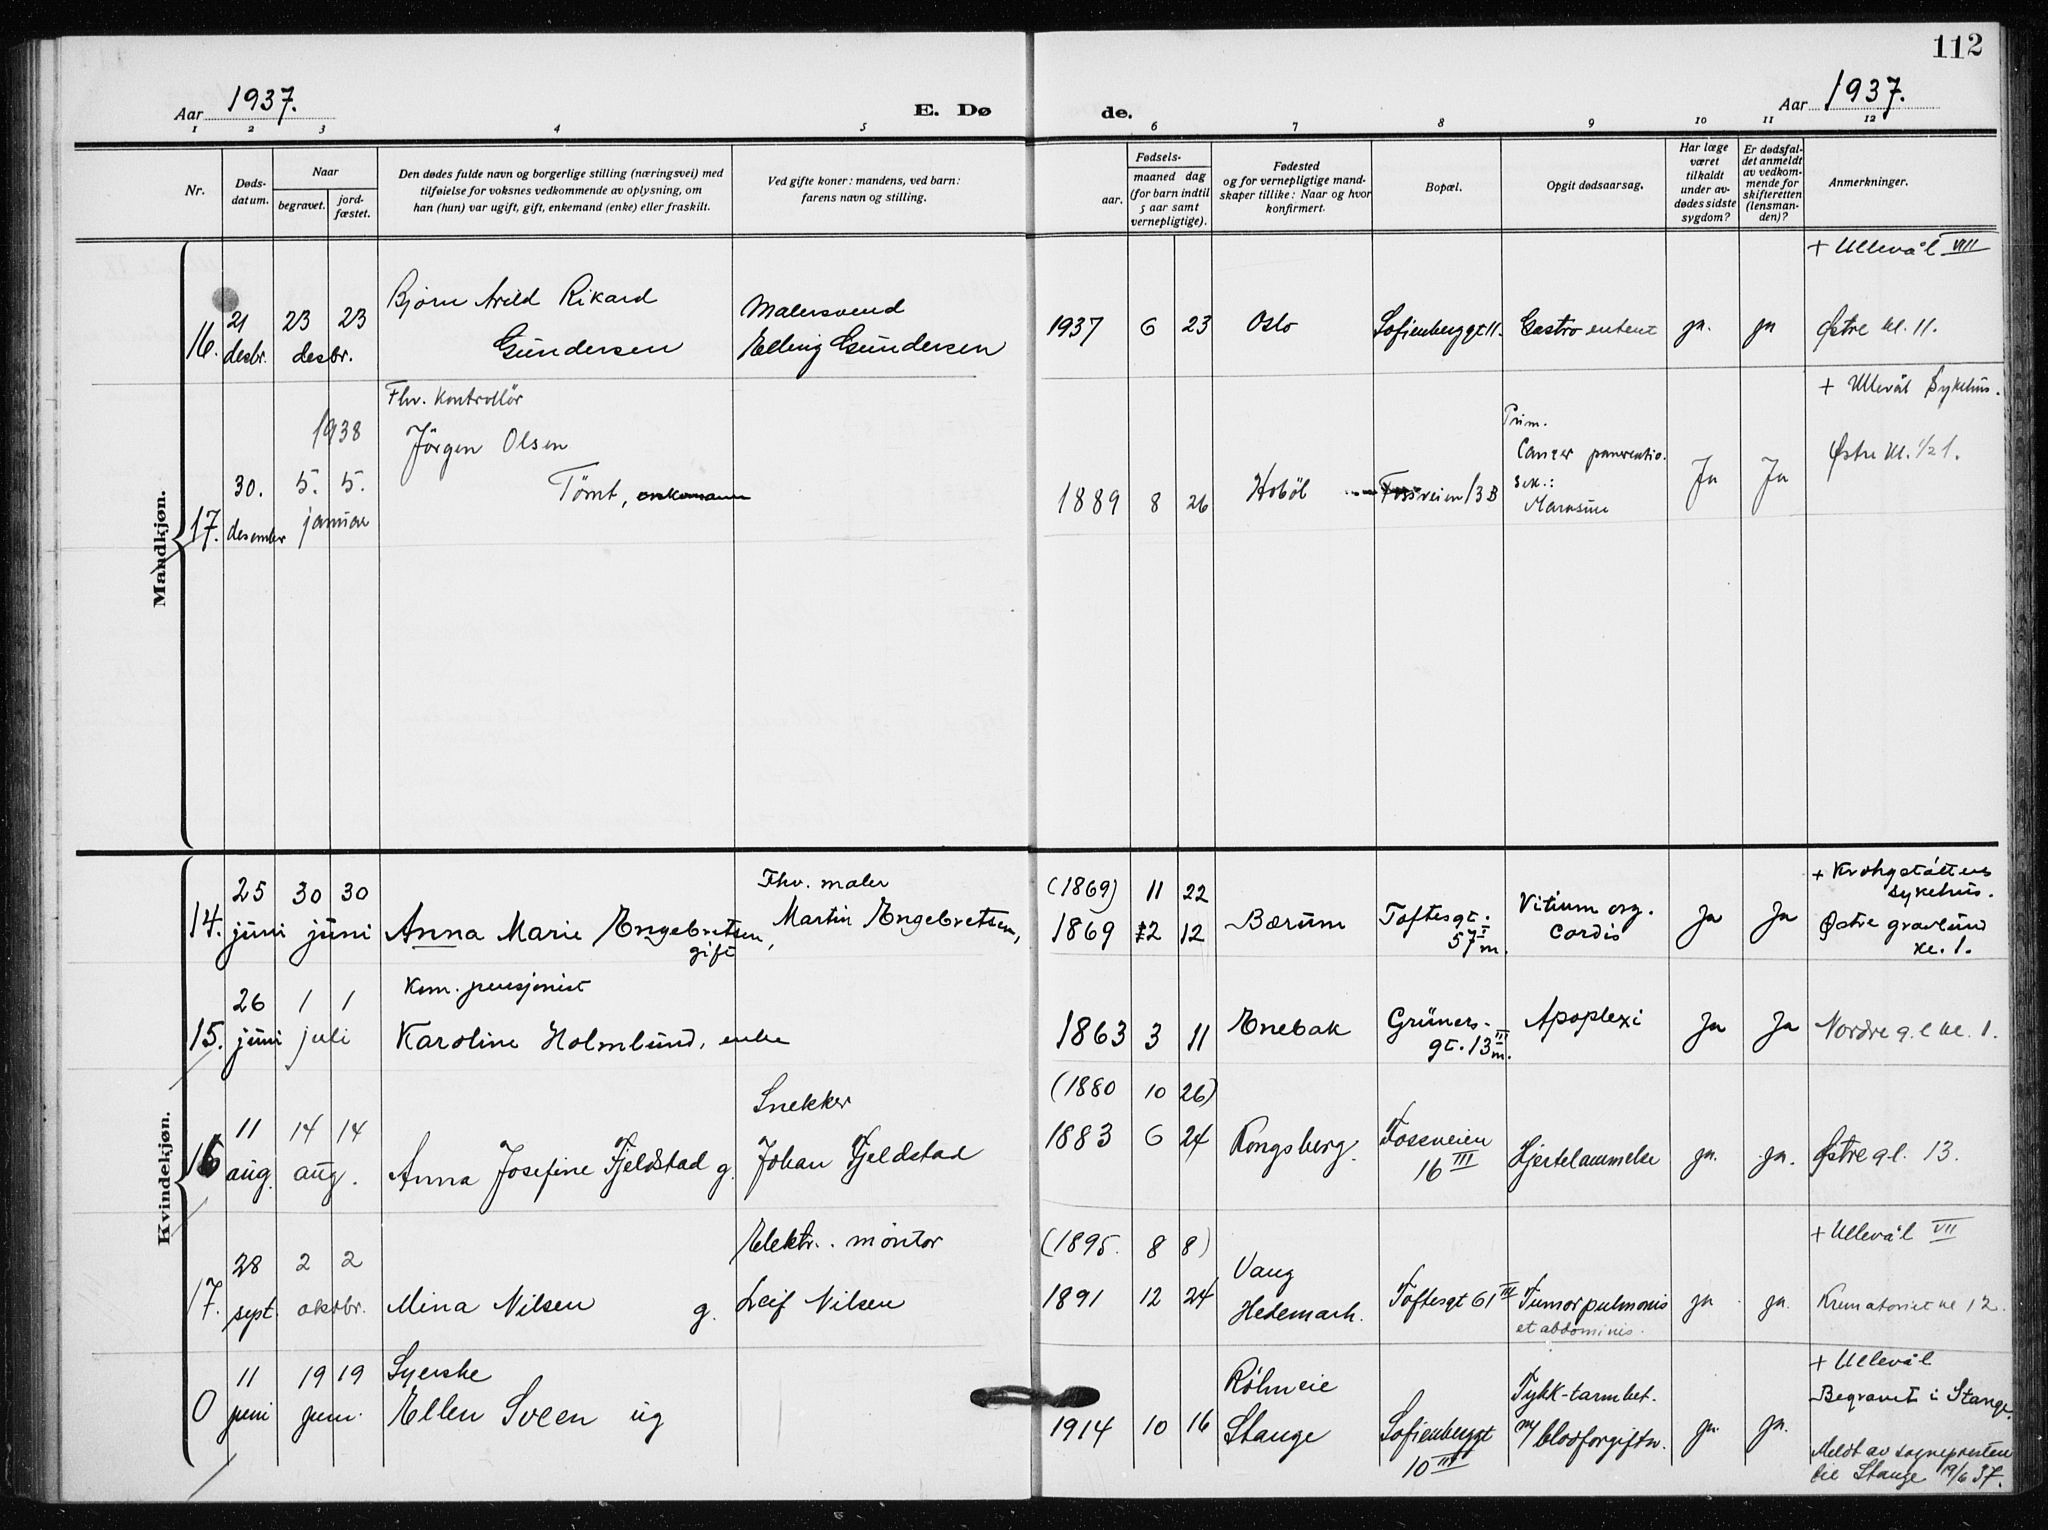 112
Aar 1937.
E. Dø
de.
Aar 1937.
1 2 3 4 5 6 7 8 9 10 11 12
Nr.
Døds-
datum.
Naar
begravet.
jord-
fæstet.
Den dødes fulde navn og borgerlige stilling (næringsvei) med
tilføielse for voksnes vedkommende av oplysning, om
han (hun) var ugift, gift, enkemand (enke) eller fraskilt.
Ved gifte koner: mandens, ved barn:
farens navn og stilling.
Fødsels-
aar.
maaned dag
(for barn indtil
5 aar samt
vernepligtige).
Fødested
og for vernepligtige mand-
skaper tillike: Naar og hvor
konfirmert.
Bopæl.
Opgit dødsaarsag.
Har læge
været
tilkaldt
under av-
dødes sidste
sygdom?
Er dødsfal-
det anmeldt
av vedkom-
mende for
skifteretten
(lensman-
den)?
Anmerkninger.
Mandkjøn.
+ Ullevål VIII
Bjørn Arild Rikard
Malersvend
16. 21 23 23
desbr. desbr.
Gundersen
Elling Gundersen
1937 6 23 Oslo Sofienberggt 11. Gastro enterit ja. ja Østre kl. 11.
Fhv. Kontrollør
+ Ullevål Sykehus.
1938
Jörgen Olsen
Prim.
Cancer pancreatic.
Østre kl. 1/2 1.
17. 30. 5. 5.
desember januar
Tömt, enkemann
1889 8 26 Hobøl Fossveien 13 B
sek.:
Marasme
Ja Ja
Kvindekjøn.
Fhv. maler
(1869) 11 22
+ Krohgstöttens
sykehus.
14. 25 30 30
juni juni
Anna Marie Engebretsen,
gift
Martin Engebretsen,
1869 12 12 Bærum Toftesgt.
57 I m.
Vitium org.
cordis
Ja Ja
Østre gravlund
kl. 1.
Kom. pensjonist
15. 26 1 1
juni juli
Karoline Holmlund, enke
1863 3 11 Enebak Grüners-
gt. 13 III m.
Apoplexi Ja Ja Nordre g.l kl. 1.
Snekker
(1880 10 26)
16 11 14 14
aug. aug.
Anna Josefine Fjeldstad g.
Johan Fjeldstad
1883 6 24 Kongsberg. Fossveien
16 III
Hjertelammelse ja. ja. Østre g.l. 13.
Elektr. montør
(1895. 8 8)
+ Ullevål VII
17. 28 2 2
sept. oktbr.
Mina Nilsen g.
Leif Nilsen
1891 12 24 Vang
Hedemark.
Toftesgt 61 III Tumor pulmonis
et abdominis.
ja. ja. Krematoriet kl 12.
Syerske
+ Ullevål
0 11 19 19
juni juni.
Ellen Sveen ug
1914 10 16
Stange
Sofienberggt
10 III
Tykk-tarmbet.
m/ blodforgiftn.
ja. ja.
Begravet i Stange.
Meldt av sognepresten
til Stange 19/6 37.